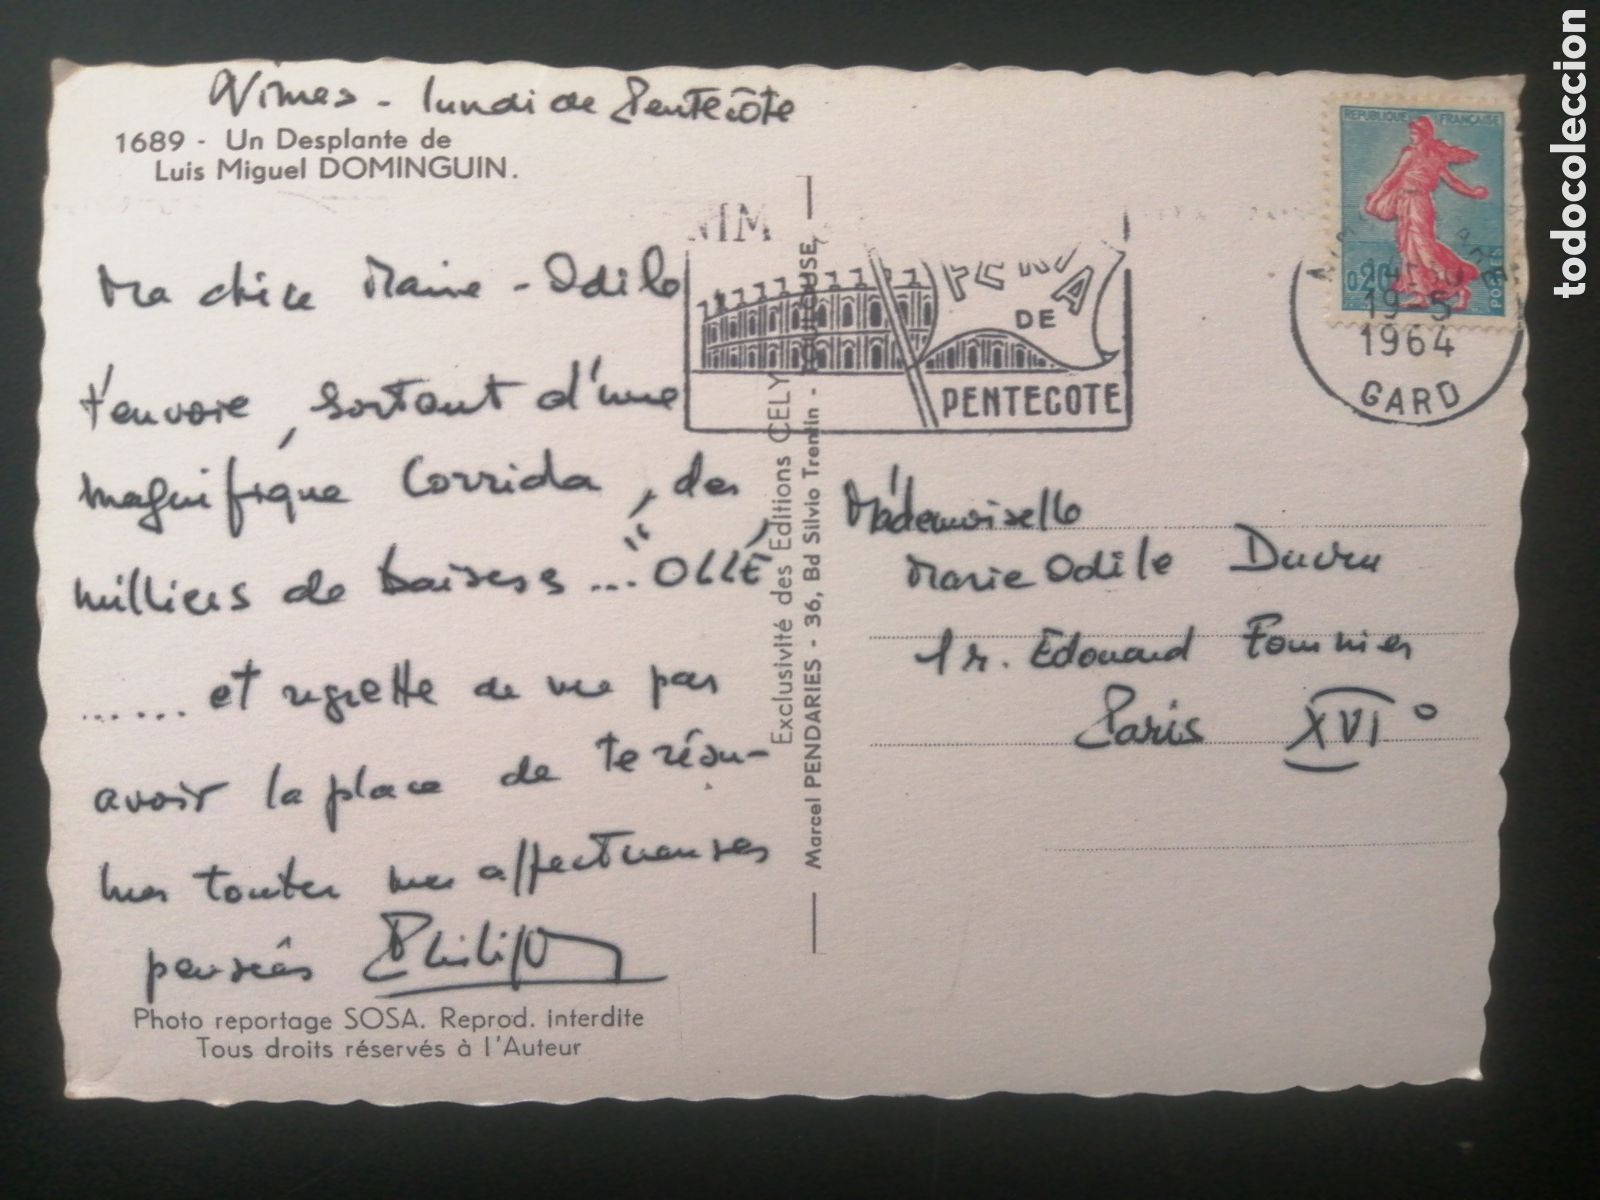 Nîmes - lundi de Pentecôte
1689 - Un Desplante de
Luis Miguel DOMINGUIN.
Ma chère Marie-Odile
t'envoie, sortant d'une
magnifique Corrida, des
milliers de baisers ... "OLLÉ"
...... et regrette de ne pas
avoir la place de te résu-
mer toutes mes affectueuses
pensées Philippe
Photo reportage SOSA. Reprod. interdite
Tous droits réservés à l'Auteur
Exclusivité des Editions CELY
Marcel PENDARIES - 36, Bd Silvio Trentin - TOULOUSE
NIM
FERIA
DE
PENTECOTE
REPUBLIQUE FRANÇAISE
0,20
POSTES
19-5
1964
GARD
Mademoiselle
Marie Odile
1 r. Edouard Fournier
Paris XVI°
todocoleccion